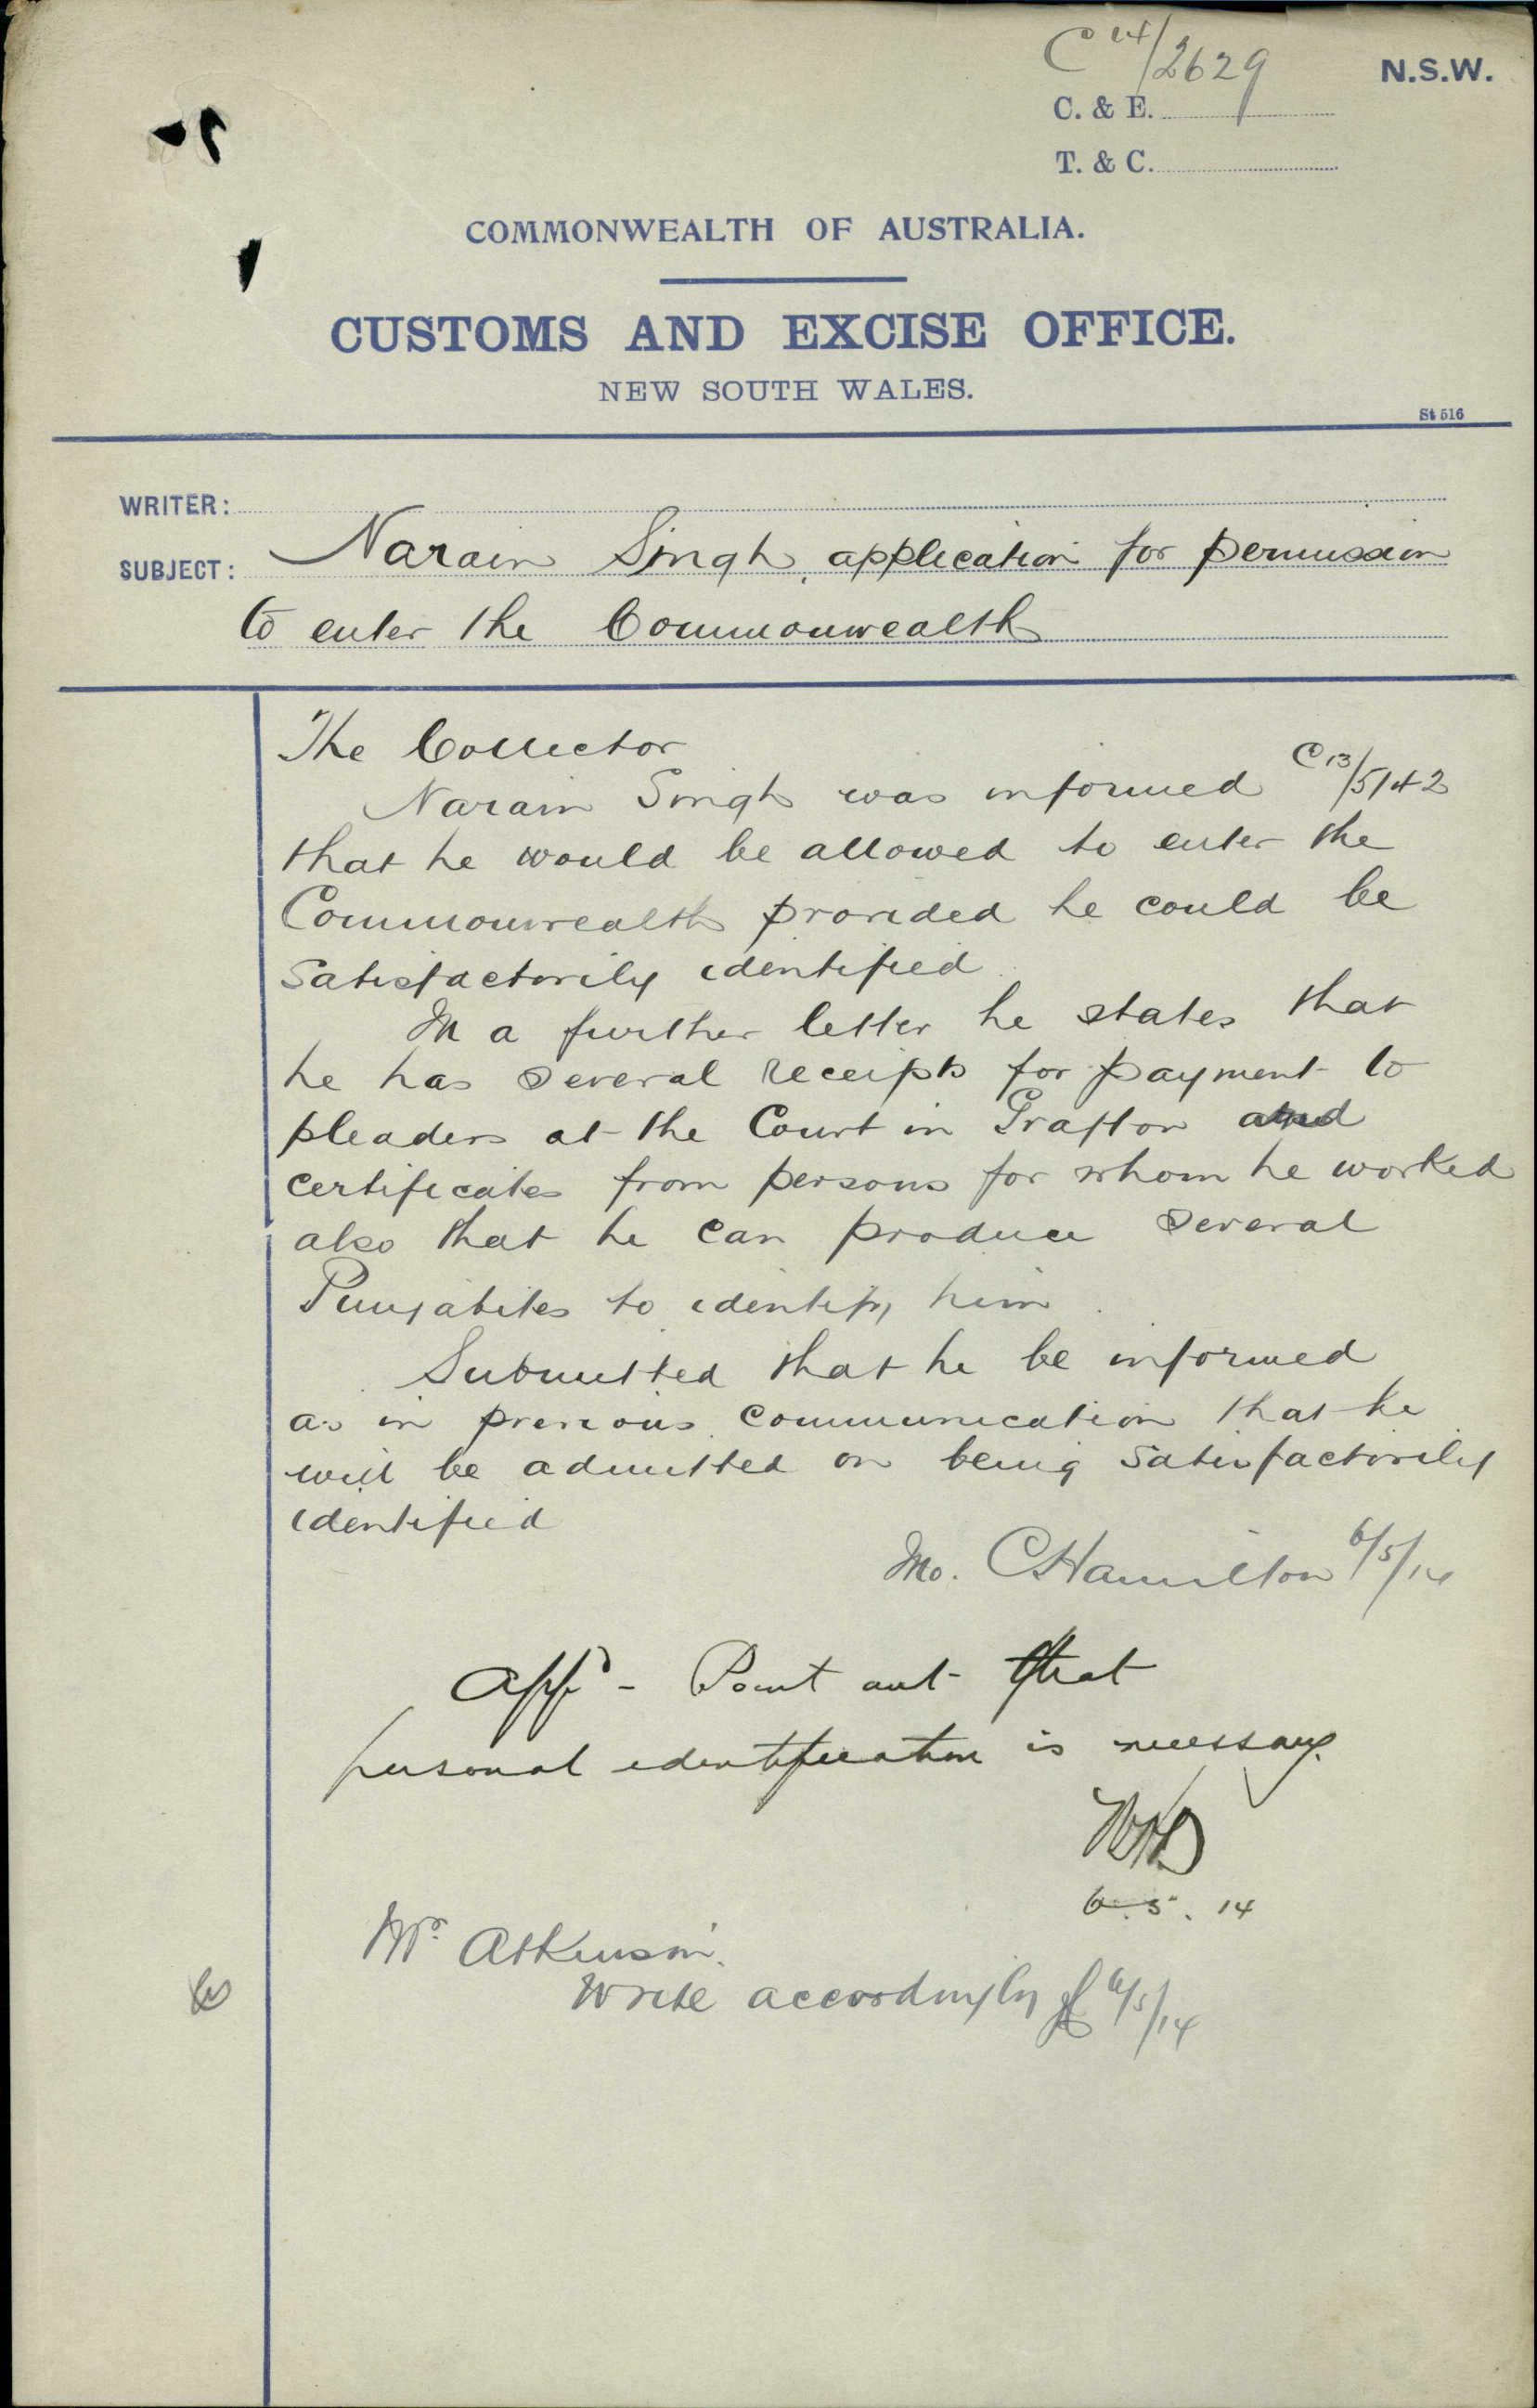 C 14/2629
N.S.W.
C. & E.
T. & C.
COMMONWEALTH OF AUSTRALIA.
CUSTOMS AND EXCISE OFFICE.
NEW SOUTH WALES.
St 516
WRITER:
SUBJECT: Narain Singh, application for permission
to enter the Commonwealth
The Collector
Narain Singh was informed C13/5142
that he would be allowed to enter the
Commonwealth provided he could be
satisfactorily identified.
In a further letter he states that
he has several receipts for payment to
pleaders at the Court in Grafton and
certificates from persons for whom he worked
also that he can produce several
Punjabites to identify him.
Submitted that he be informed
as in previous communication that he
will be admitted on being satisfactorily
identified
C Hamilton 6/5/14
Appd - Point out that
personal identification is necessary.
6.5.14
Mr Atkinson.
Write accordingly 6/5/14